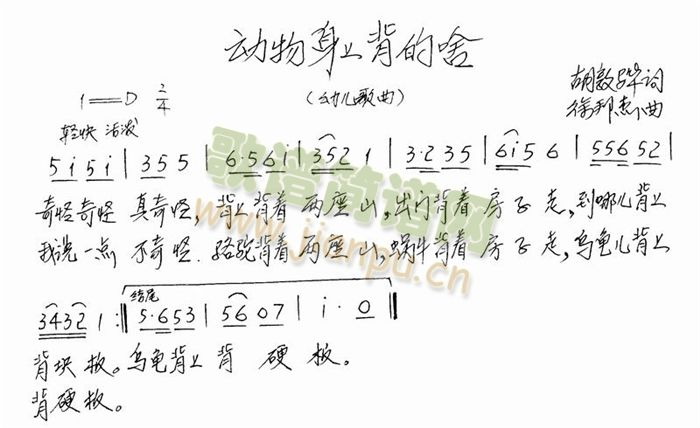 动物身上背的啥
（幼儿歌曲）
1=D 2/4
胡敦骅词
徐邦杰曲
轻快 活泼
5 i 5 i | 3 5 5 | 6·5 6 i | 3 5 2 1 | 3·2 3 5 | 6 i 5 6 | 5 5 6 5 2 |
奇怪奇怪 真奇怪，背上背着 两座山，出门背着 房子走，到哪儿背上
我说一点 不奇怪．骆驼背着 两座山，蜗牛背着 房子走，乌龟儿背上
结尾
3 4 3 2 1 :‖ 5·6 5 3 | 5 6 0 7 | i · 0 ‖
背块板。乌龟背上 背 硬 板。
背硬板。
歌谱简谱网
www.jianpu.cn